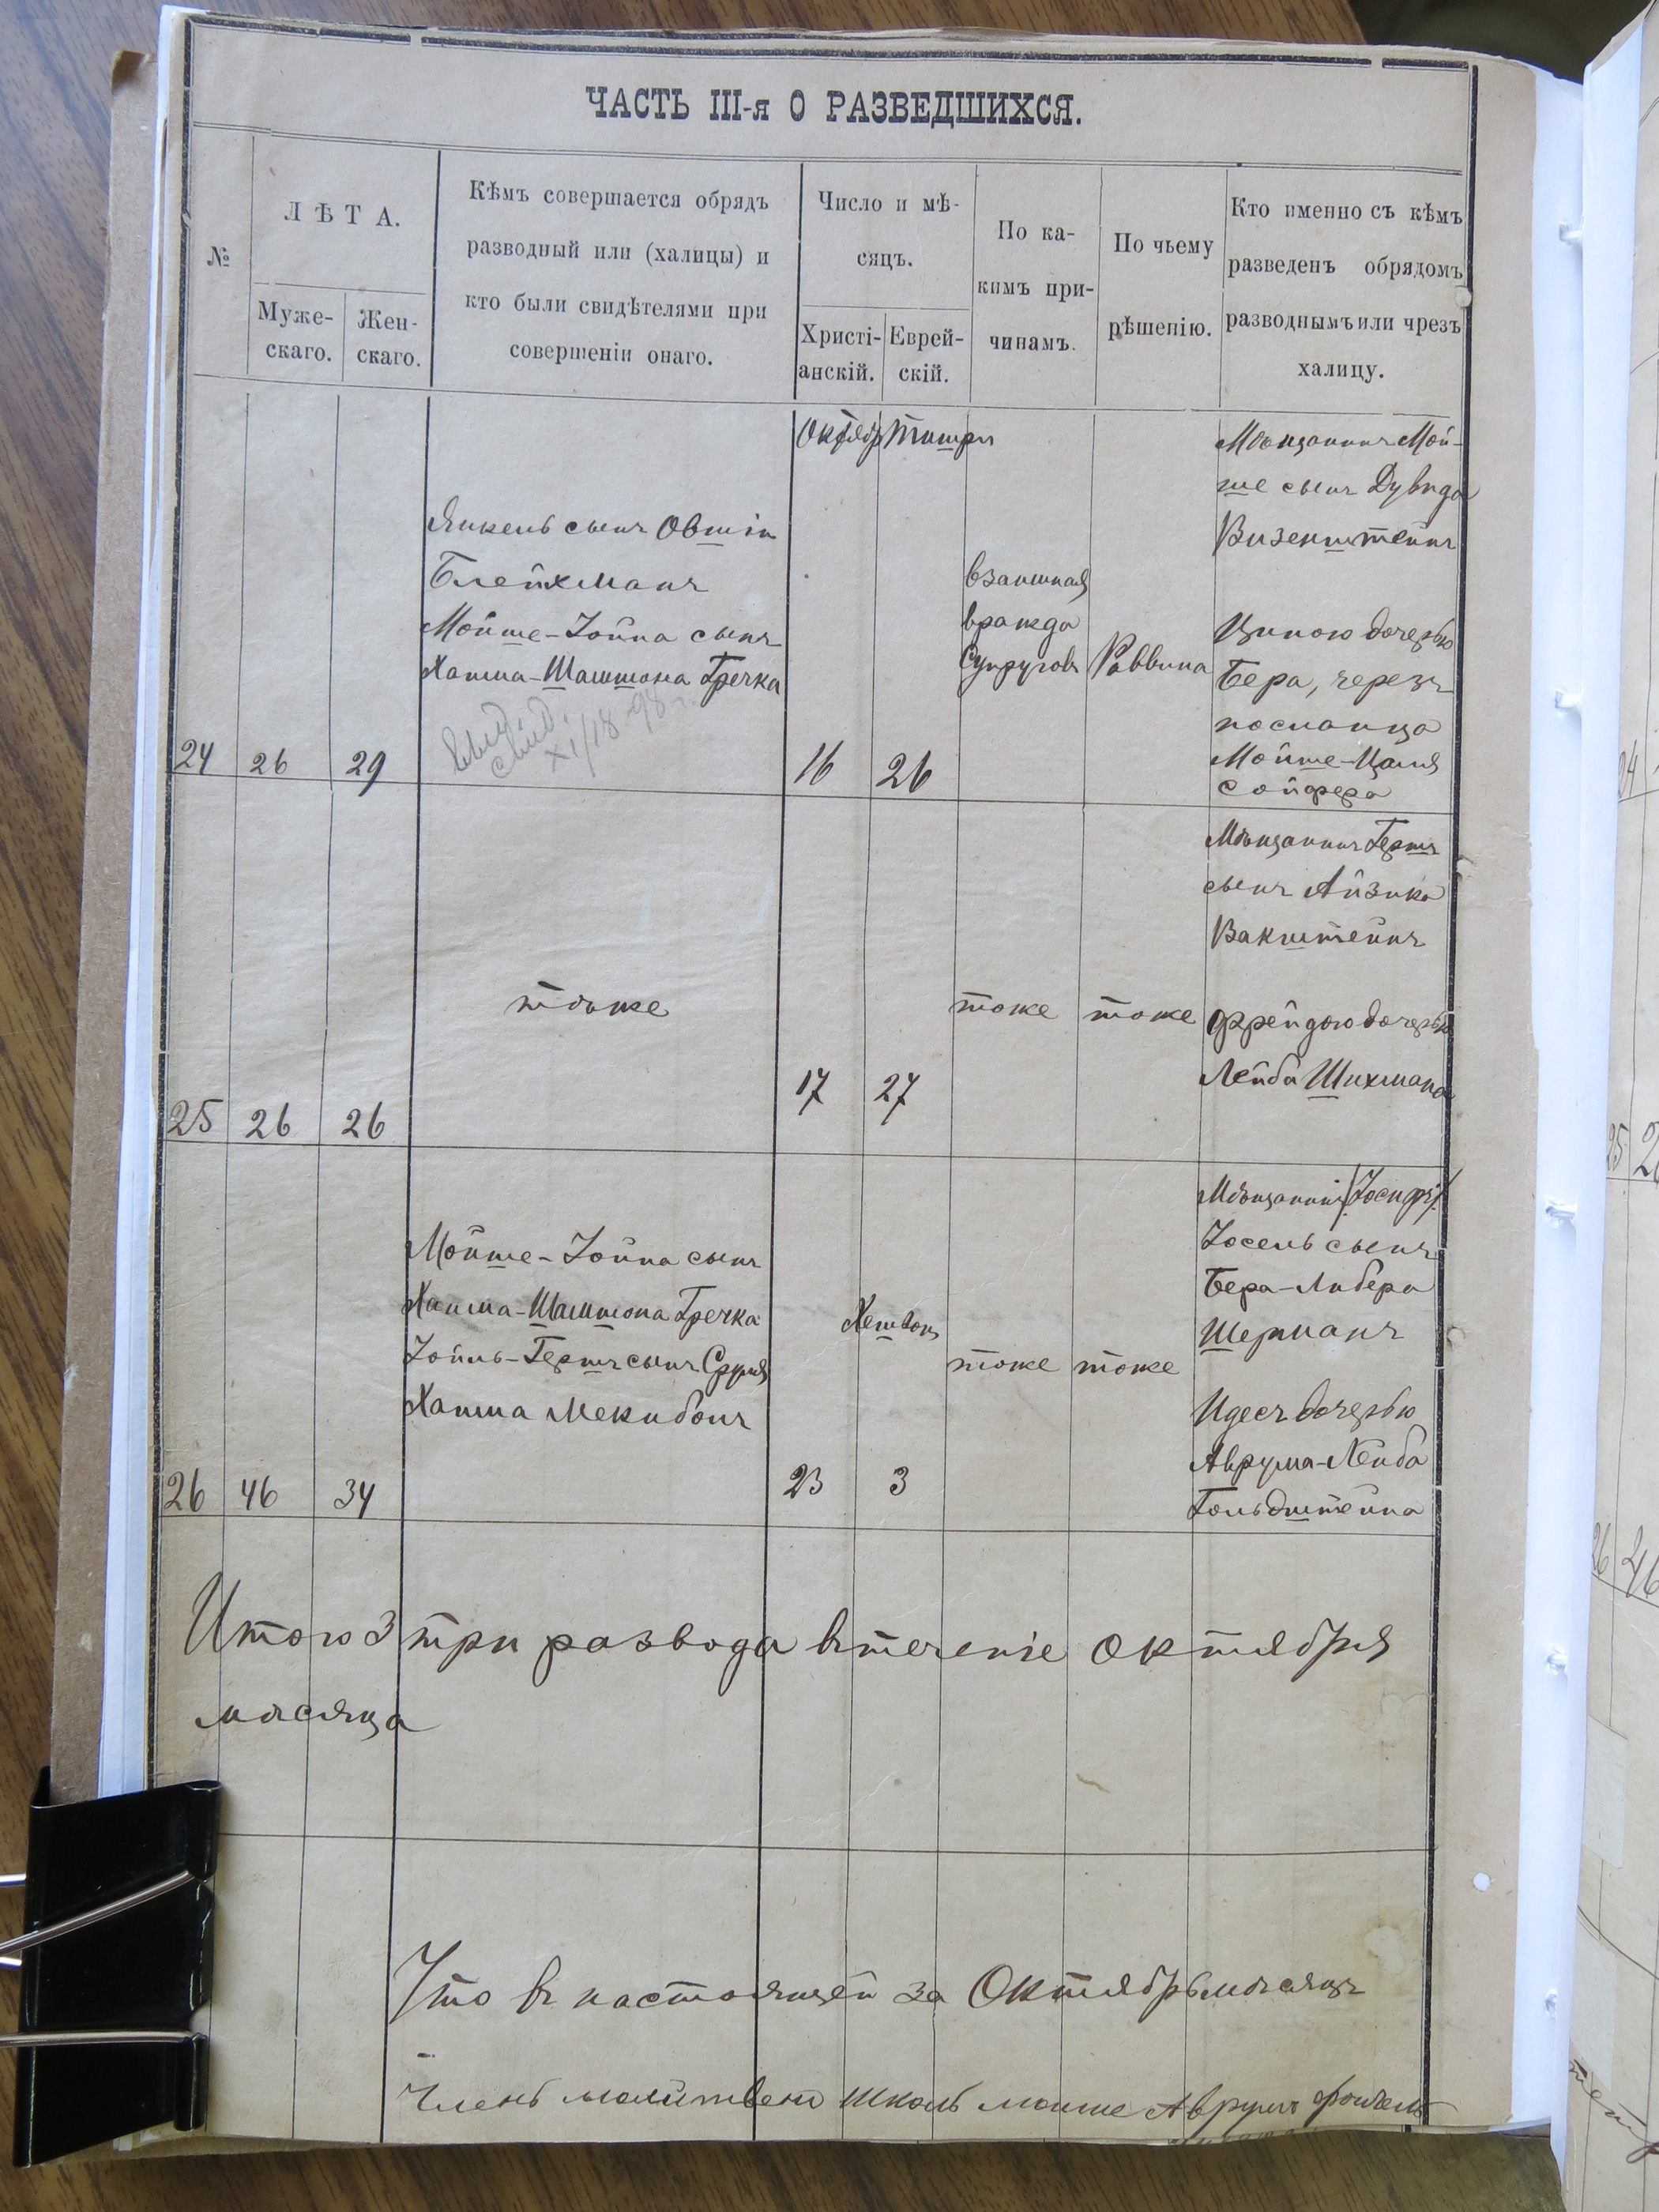 ЧАСТЬ III-я О РАЗВЕДШИХСЯ.
№
ЛѢТА.
Муже-
скаго.
Жен-
скаго.
Кѣмъ совершается обрядъ
разводный или (халицы) и
кто были свидѣтелями при
совершеніи онаго.
Число и мѣ-
сяцъ.
Христі-
анскій.
Еврей-
скій.
По ка-
кимъ при-
чинамъ.
По чьему
рѣшенію.
Кто именно съ кѣмъ
разведенъ обрядомъ
разводнымъ или чрезъ
халицу.
24
26
29
Янкель сынъ Овшія
Блейхманъ
Мойше-Іойна сынъ
Хаима-Шашшона Гречка
XI/18 98 г.
Октябр
16
Тишри
26
взаимная
вражда
супруговъ
Раввина
Мѣщанинъ Мой-
ше сынъ Дувида
Визенштейнъ
Ципою дочерью
Бера, черезъ
посланца
Мойше-Цаля
Сойфера
25
26
26
тѣже
17
27
тоже
тоже
Мѣщанинъ Гершъ
сынъ Айзика
Вакштейнъ
Фрейдою дочерью
Лейба Шихмана
26
46
34
Мойше-Іойна сынъ
Хаима-Шашшона Гречка
Іойль-Гершъ сынъ Сруля
Хаима Мекибонъ
23
Хешван
3
тоже
тоже
Мѣщанинъ /Іосифъ/
Іосель сынъ
Бера-Либера
Шерманъ
Идесъ дочерью
Аврума-Лейба
Гольдштейна
Итого 3 три развода втеченіе октября
мѣсяца
Что въ настоящей за Октябрь мѣсяцъ
Членъ молитвен школь мошие Аврумъ